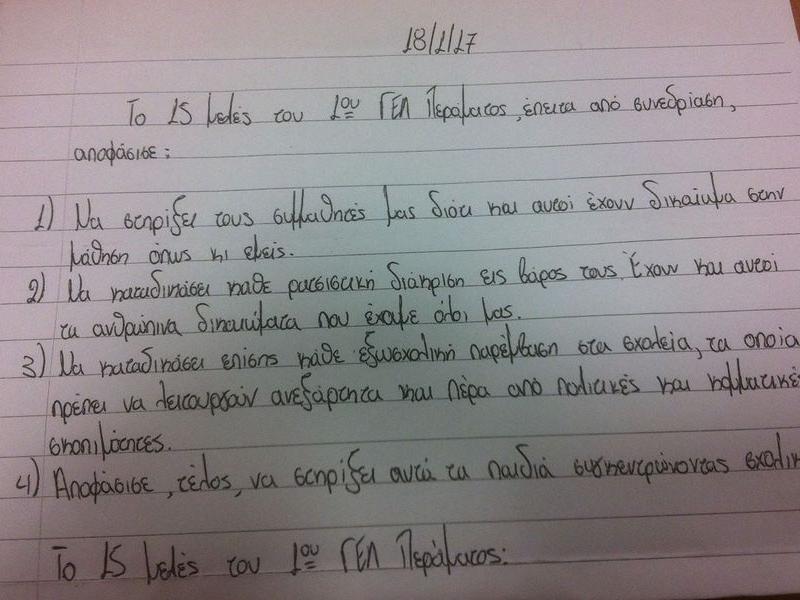 18/1/17
Το 15μελές του 1ου ΓΕΛ Περάματος, έπειτα από συνεδρίαση,
αποφάσισε:
1) Να στηρίξει τους συμμαθητές μας διότι και αυτοί έχουν δικαίωμα στην
μάθηση όπως κι εμείς.
2) Να καταδικάσει κάθε ρατσιστική διάκριση εις βάρος τους. Έχουν και αυτοί
τα ανθρώπινα δικαιώματα που έχουμε όλοι μας.
3) Να καταδικάσει επίσης κάθε εξωσχολική παρέμβαση στα σχολεία, τα οποία
πρέπει να λειτουργούν ανεξάρτητα και πέρα από πολιτικές και κομματικές
σκοπιμότητες.
4) Αποφάσισε, τέλος, να στηρίξει αυτά τα παιδιά συγκεντρώνοντας σχολικ
Το 15μελές του 1ου ΓΕΛ Περάματος: